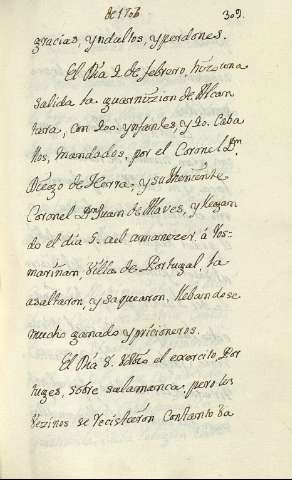 de 1706
309.
gracias, yndultos, yperdones.
El Dia 2. de febrero, hizo una
salida la guarnizion de Alcan
tara, con 200. ynfantes, y 20. Caba
llos, mandados, por el Coronel Dn
Diego de Horna, y su Theniente
Coronel Dn Juan de Maves, y llegan
do el dia 5. al amanezer, á Ros-
mariñan, Villa de Portugal, la
asaltaron, y saquearon, llebandose
mucho ganado y pricioneros.
El Dia 8. el exercito, Por
tuges, sobre salamanca, pero los
vezinos se recistieron con tanto ba